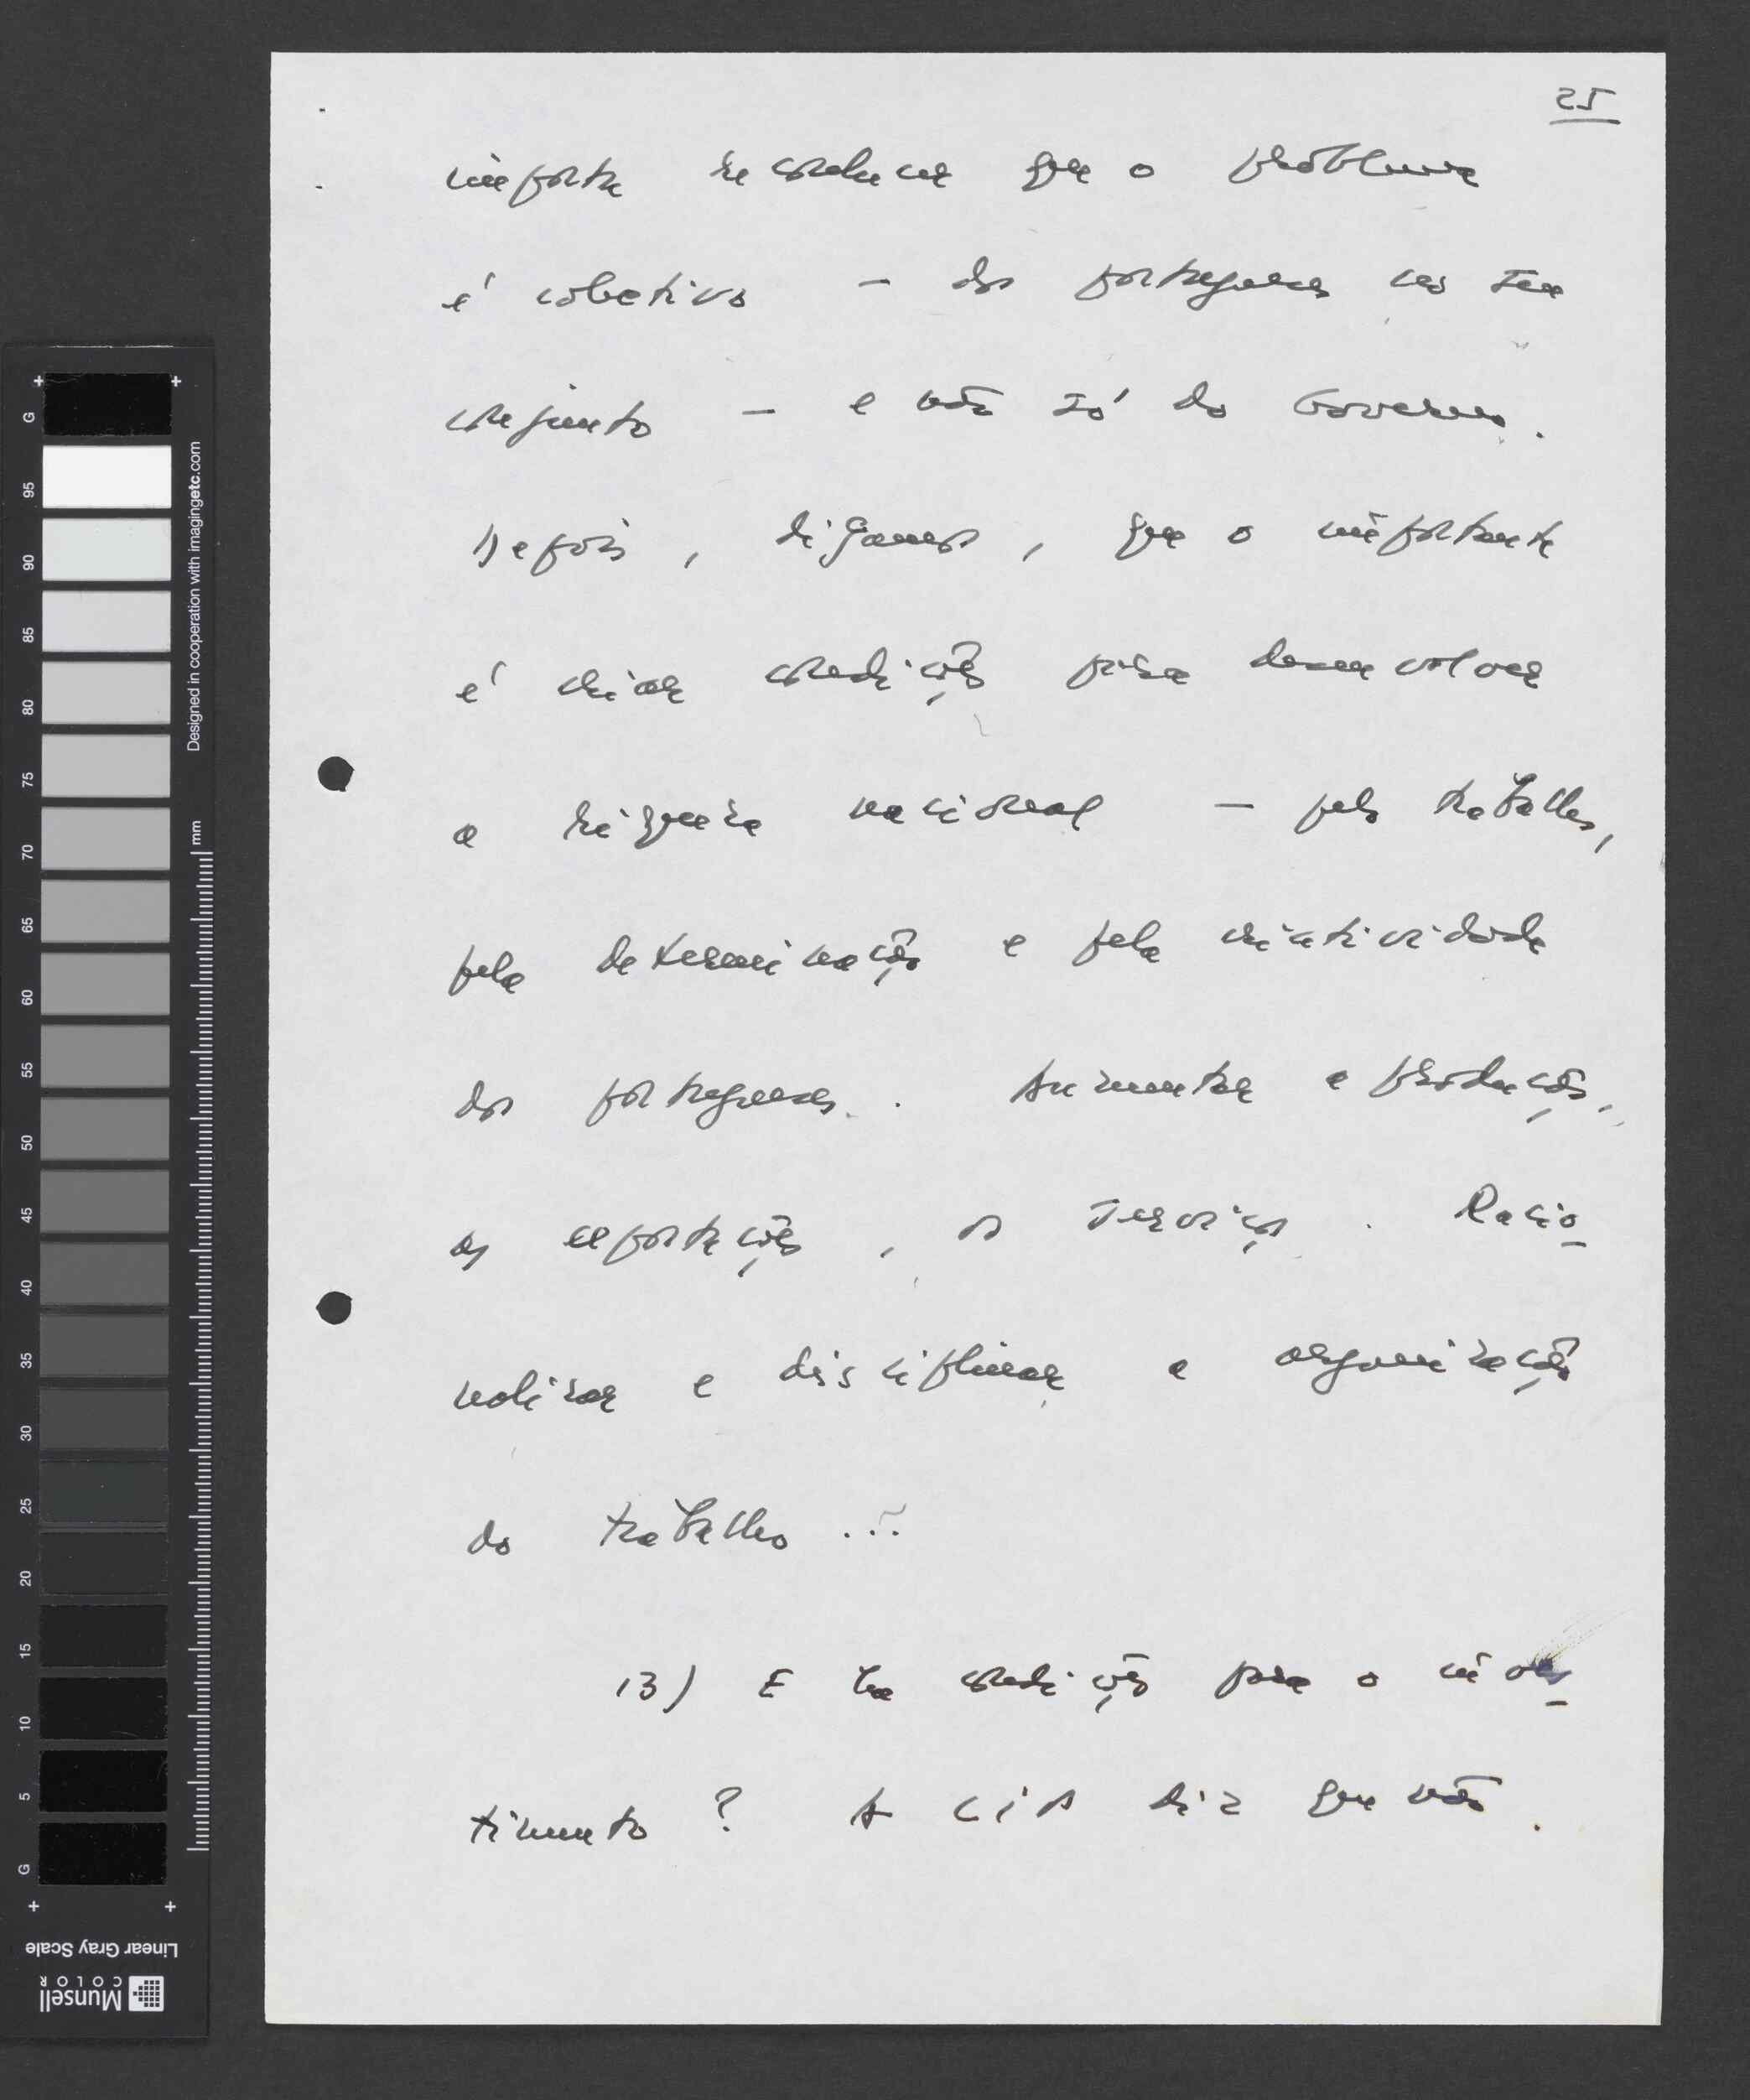 25
importa reconhecer que o problema
é coletivo – dos portugueses no seu
conjunto – e não só do Governo.
Depois, digamos, que o importante
é criar condições para desenvolver
a riqueza nacional – pelo trabalho,
pela determinação e pela criatividade
dos portugueses. Aumentar a produção,
as exportações, os serviços. Racio-
nalizar e disciplinar a organização
do trabalho...
13) E há condições para o inves-
timento? A CIP diz que não.
G 95 90 85 80 75 70 65 60 55 50 45 40 35 30 25 20 15 10 5 G
mm
Designed in cooperation with imagingetc.com
Linear Gray Scale
Munsell
COLOR